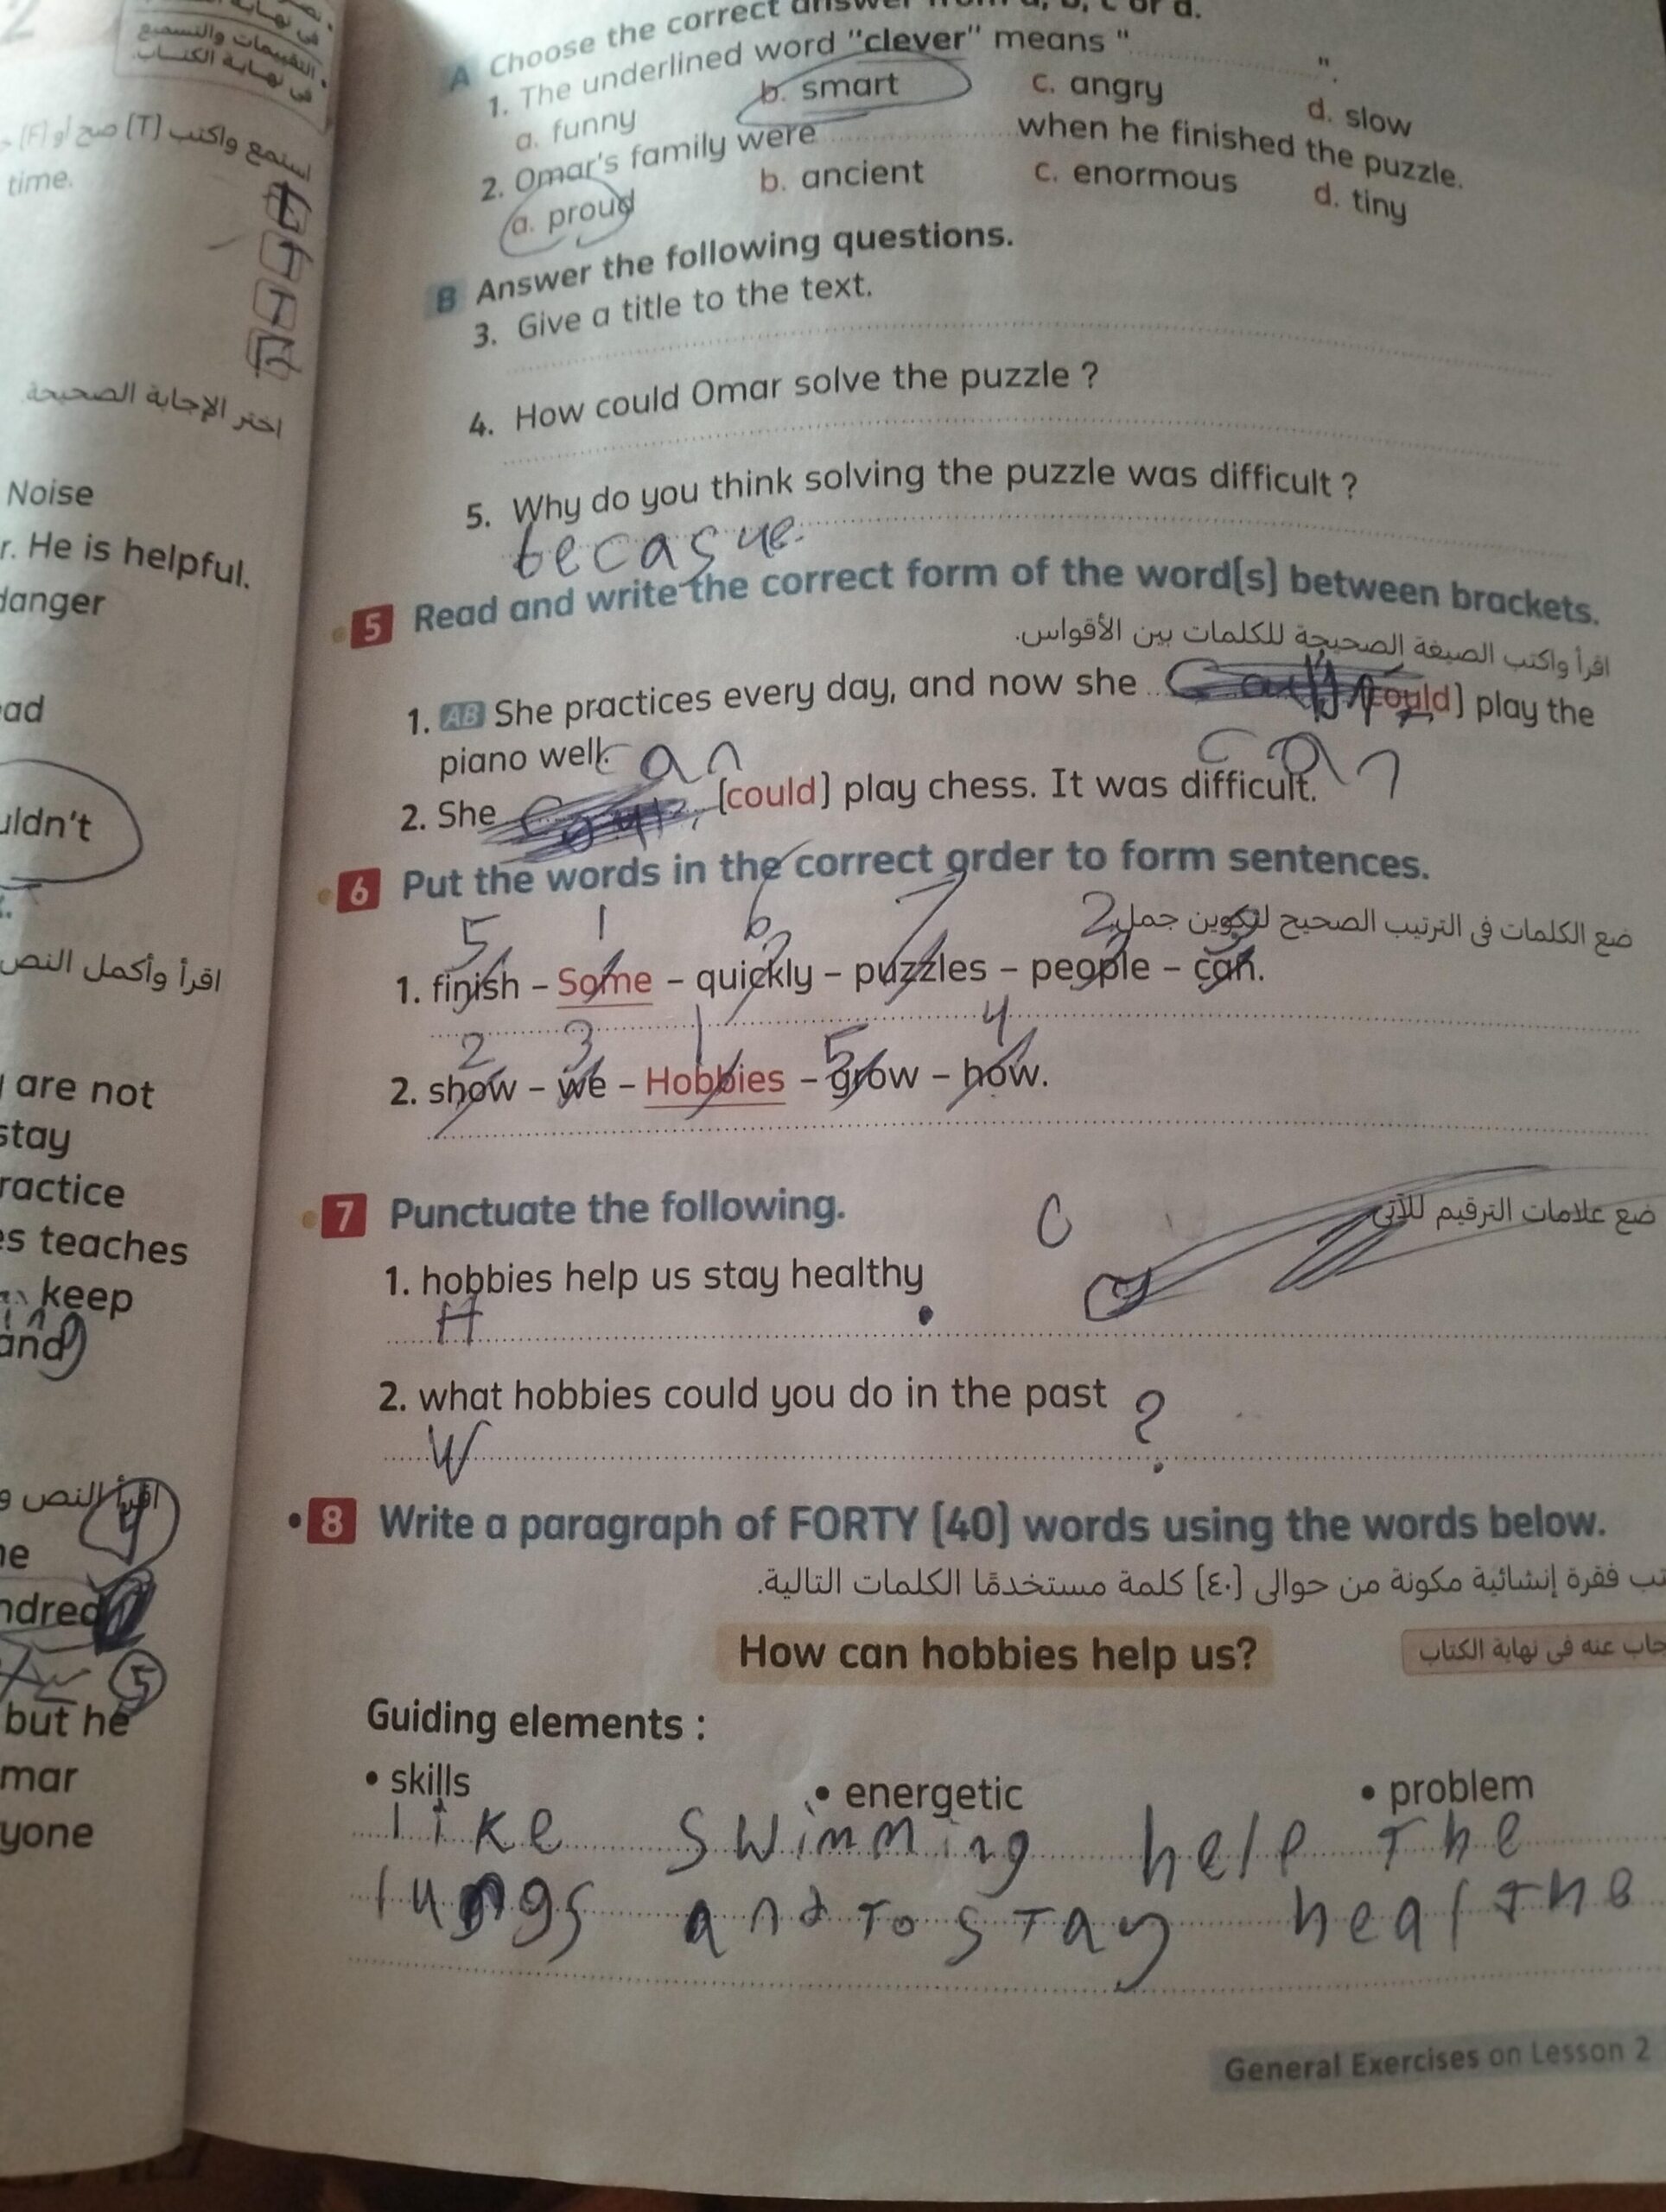 في نهاية
التقييمات والتسميع
في نهاية الكتاب.
استمع واكتب (T) صح أو (F)
time.
اختر الإجابة الصحيحة
Noise
r. He is helpful.
danger
ad
uldn't
اقرأ وأكمل النص
are not
stay
ractice
es teaches
keep
and
اقرأ النص و
4
ne
ndred
5
but he
mar
yone
A Choose the correct answer from a, b, c or d.
1. The underlined word "clever" means "..........".
a. funny b. smart c. angry d. slow
2. Omar's family were .......... when he finished the puzzle.
a. proud b. ancient c. enormous d. tiny
B Answer the following questions.
3. Give a title to the text.
4. How could Omar solve the puzzle ?
5. Why do you think solving the puzzle was difficult ?
becasue.
5 Read and write the correct form of the word(s) between brackets.
اقرأ واكتب الصيغة الصحيحة للكلمات بين الأقواس.
1. AB She practices every day, and now she .......... (could) play the
piano well. can can
2. She .......... (could) play chess. It was difficult.
6 Put the words in the correct order to form sentences.
ضع الكلمات في الترتيب الصحيح لتكوين جمل.
5 1 6 7 2 3
1. finish – Some – quickly – puzzles – people – can.
2 3 1 5 4
2. show – we – Hobbies – grow – how.
7 Punctuate the following.
ضع علامات الترقيم للآتى
1. hobbies help us stay healthy
H .
2. what hobbies could you do in the past ?
W
8 Write a paragraph of FORTY (40) words using the words below.
تب فقرة إنشائية مكونة من حوالى (٤٠) كلمة مستخدمًا الكلمات التالية.
How can hobbies help us?
جاب عنه فى نهاية الكتاب
Guiding elements :
• skills • energetic • problem
like swimming help The
lungs and To sTay healThe
General Exercises on Lesson 2